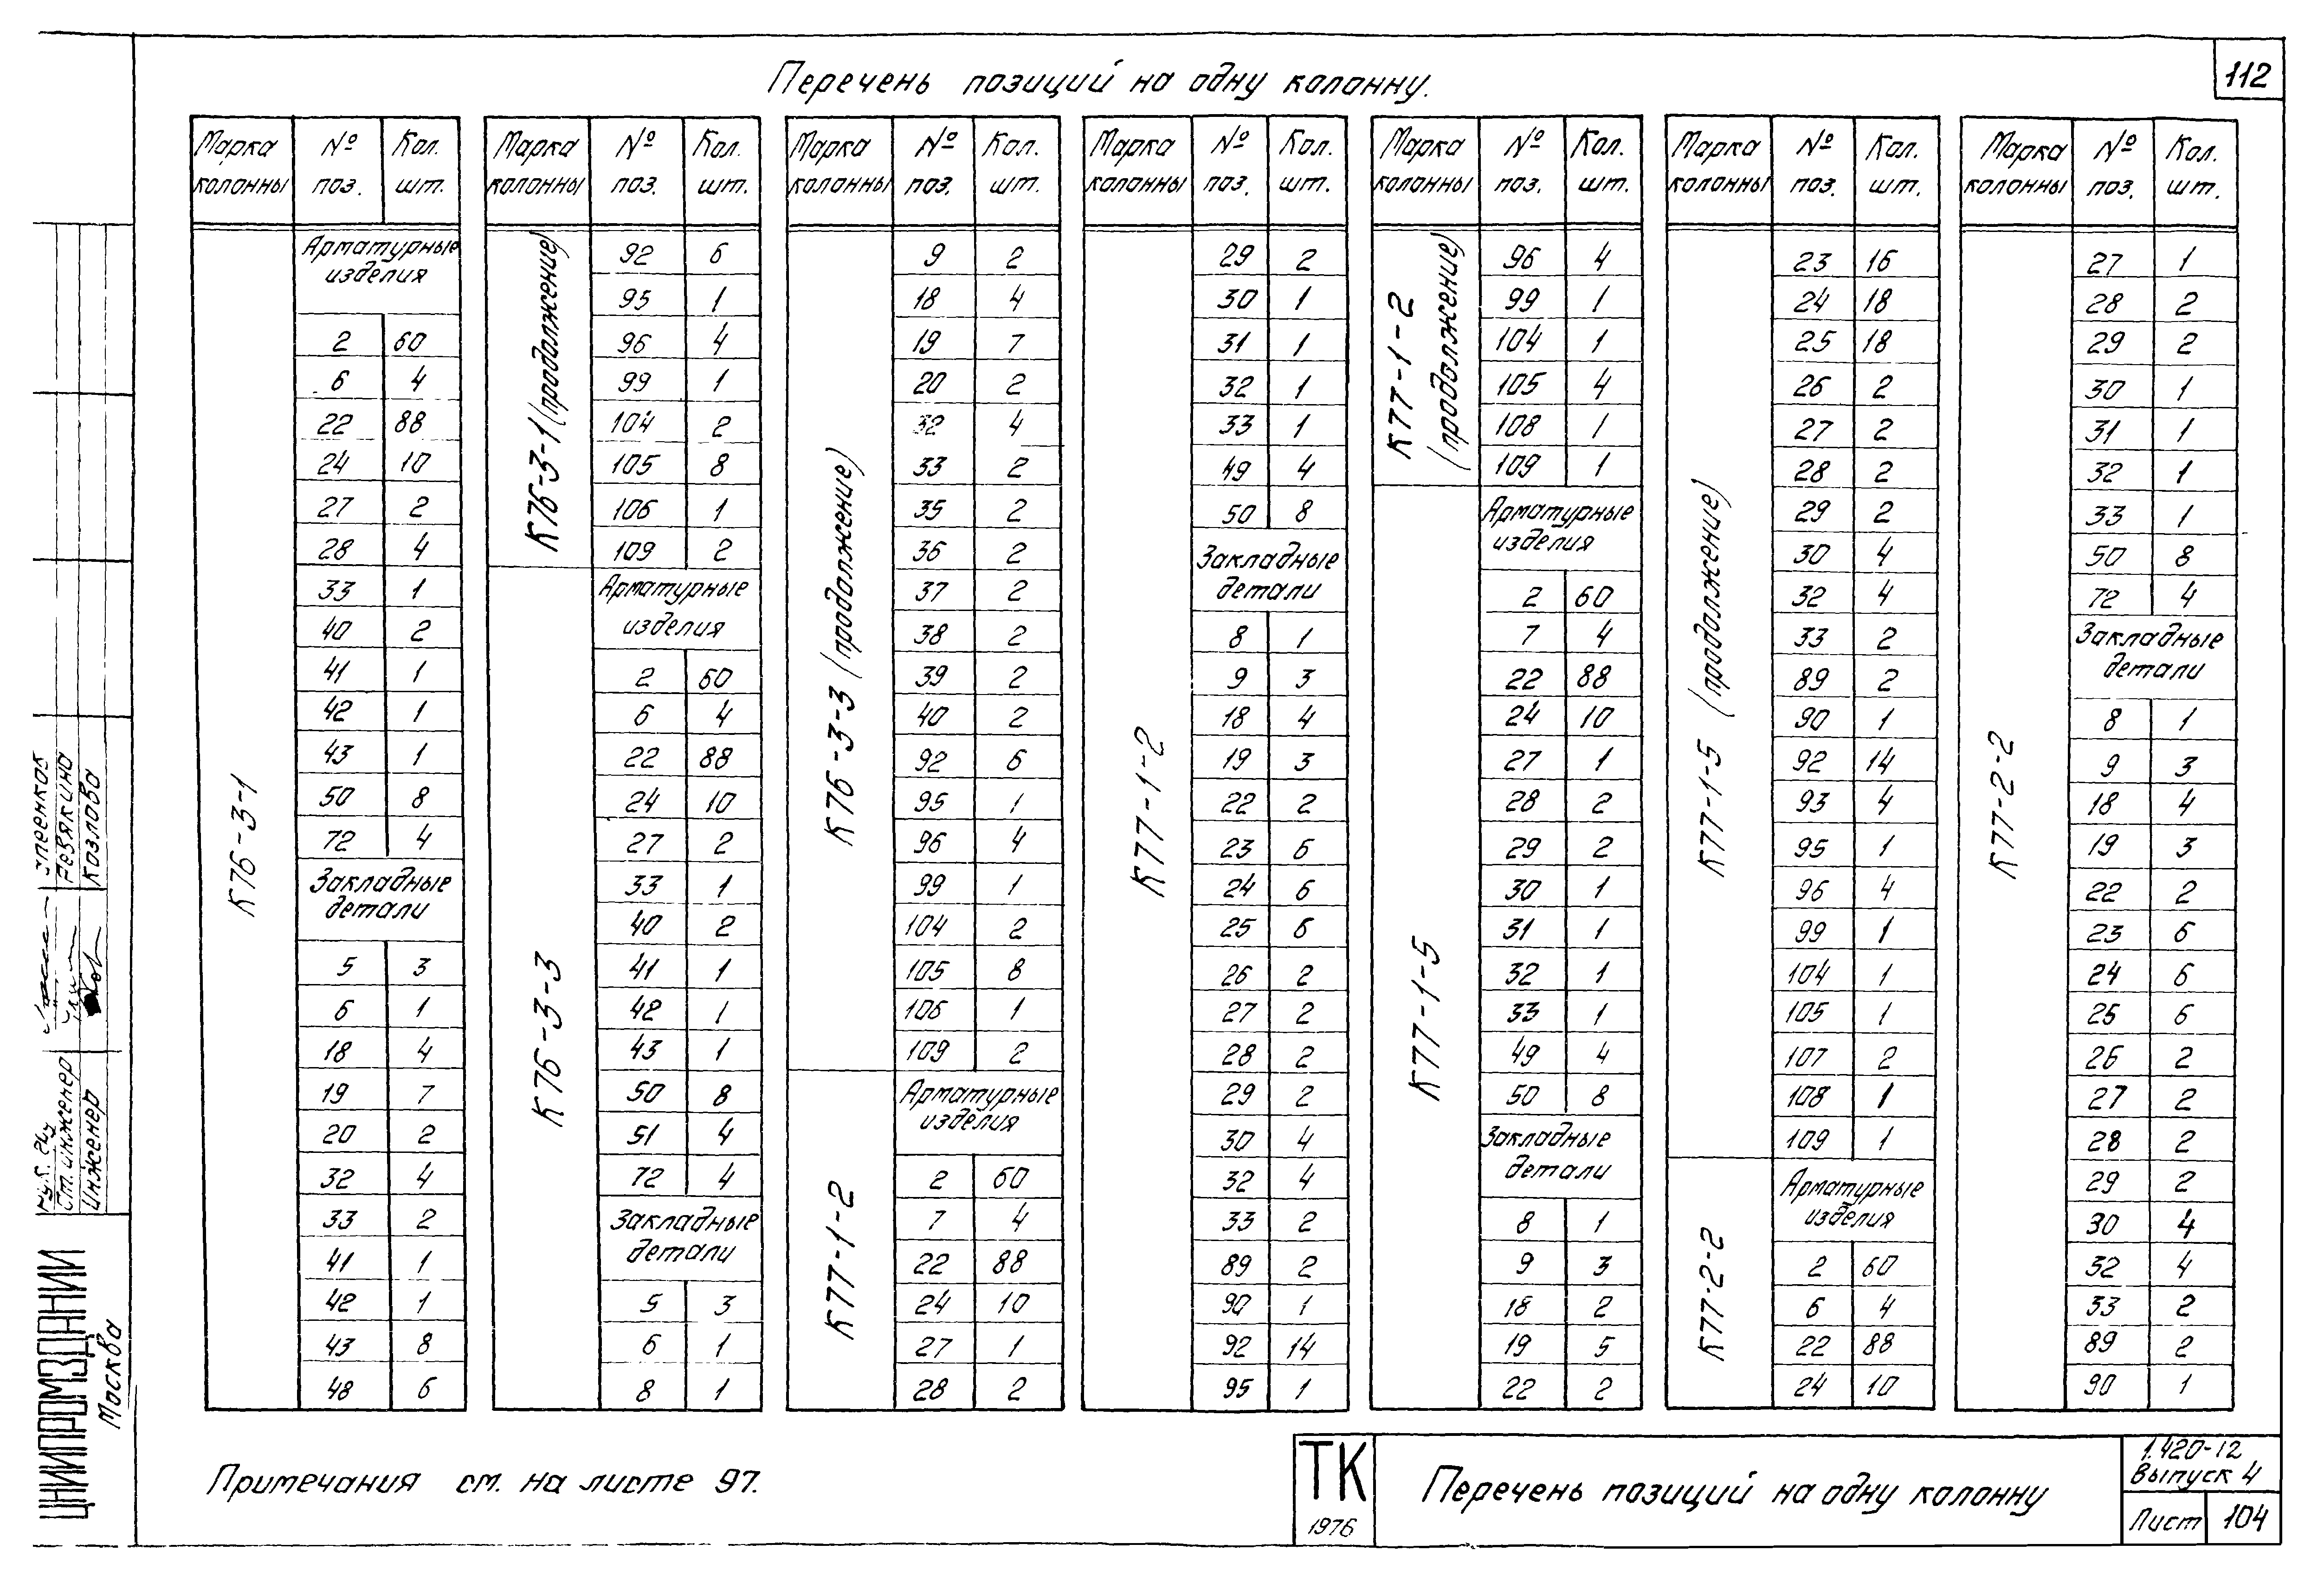 112
Перечень позиций на одну колонну.
Марка колонны № поз. Кол. шт.
К76-3-1
Арматурные
изделия
2 60
6 4
22 88
24 10
27 2
28 4
33 1
40 2
41 1
42 1
43 1
50 8
72 4
Закладные
детали
5 3
6 1
18 4
19 7
20 2
32 4
33 2
41 1
42 1
43 8
48 6
Марка колонны № поз. Кол. шт.
К76-3-1 (продолжение)
92 6
95 1
96 4
99 1
104 2
105 8
106 1
109 2
К76-3-3
Арматурные
изделия
2 60
6 4
22 88
24 10
27 2
33 1
40 2
41 1
42 1
43 1
50 8
51 4
72 4
Закладные
детали
5 3
6 1
8 1
Марка колонны № поз. Кол. шт.
К76-3-3 (продолжение)
9 2
18 4
19 7
20 2
32 4
33 2
35 2
36 2
37 2
38 2
39 2
40 2
92 6
95 1
96 4
99 1
104 2
105 8
106 1
109 2
К77-1-2
Арматурные
изделия
2 60
7 4
22 88
24 10
27 1
28 2
Марка колонны № поз. Кол. шт.
К77-1-2
29 2
30 1
31 1
32 1
33 1
49 4
50 8
Закладные
детали
8 1
9 3
18 4
19 3
22 2
23 6
24 6
25 6
26 2
27 2
28 2
29 2
30 4
32 4
33 2
89 2
90 1
92 14
95 1
Марка колонны № поз. Кол. шт.
К77-1-2
(продолжение)
96 4
99 1
104 1
105 4
108 1
109 1
К77-1-5
Арматурные
изделия
2 60
7 4
22 88
24 10
27 1
28 2
29 2
30 1
31 1
32 1
33 1
49 4
50 8
Закладные
детали
8 1
9 3
18 2
19 5
22 2
Марка колонны № поз. Кол. шт.
К77-1-5 (продолжение)
23 16
24 18
25 18
26 2
27 2
28 2
29 2
30 4
32 4
33 2
89 2
90 1
92 14
93 4
95 1
96 4
99 1
104 1
105 1
107 2
108 1
109 1
К77-2-2
Арматурные
изделия
2 60
6 4
22 88
24 10
Марка колонны № поз. Кол. шт.
К77-2-2
27 1
28 2
29 2
30 1
31 1
32 1
33 1
50 8
72 4
Закладные
детали
8 1
9 3
18 4
19 3
22 2
23 6
24 6
25 6
26 2
27 2
28 2
29 2
30 4
32 4
33 2
89 2
90 1
Примечания см. на листе 97.
ТК
1976
Перечень позиций на одну колонну
1.420-12
Выпуск 4
Лист 104
Ст. инженер Резякина
Инженер Козлова
ЦНИИПРОМЗДАНИЙ
Москва